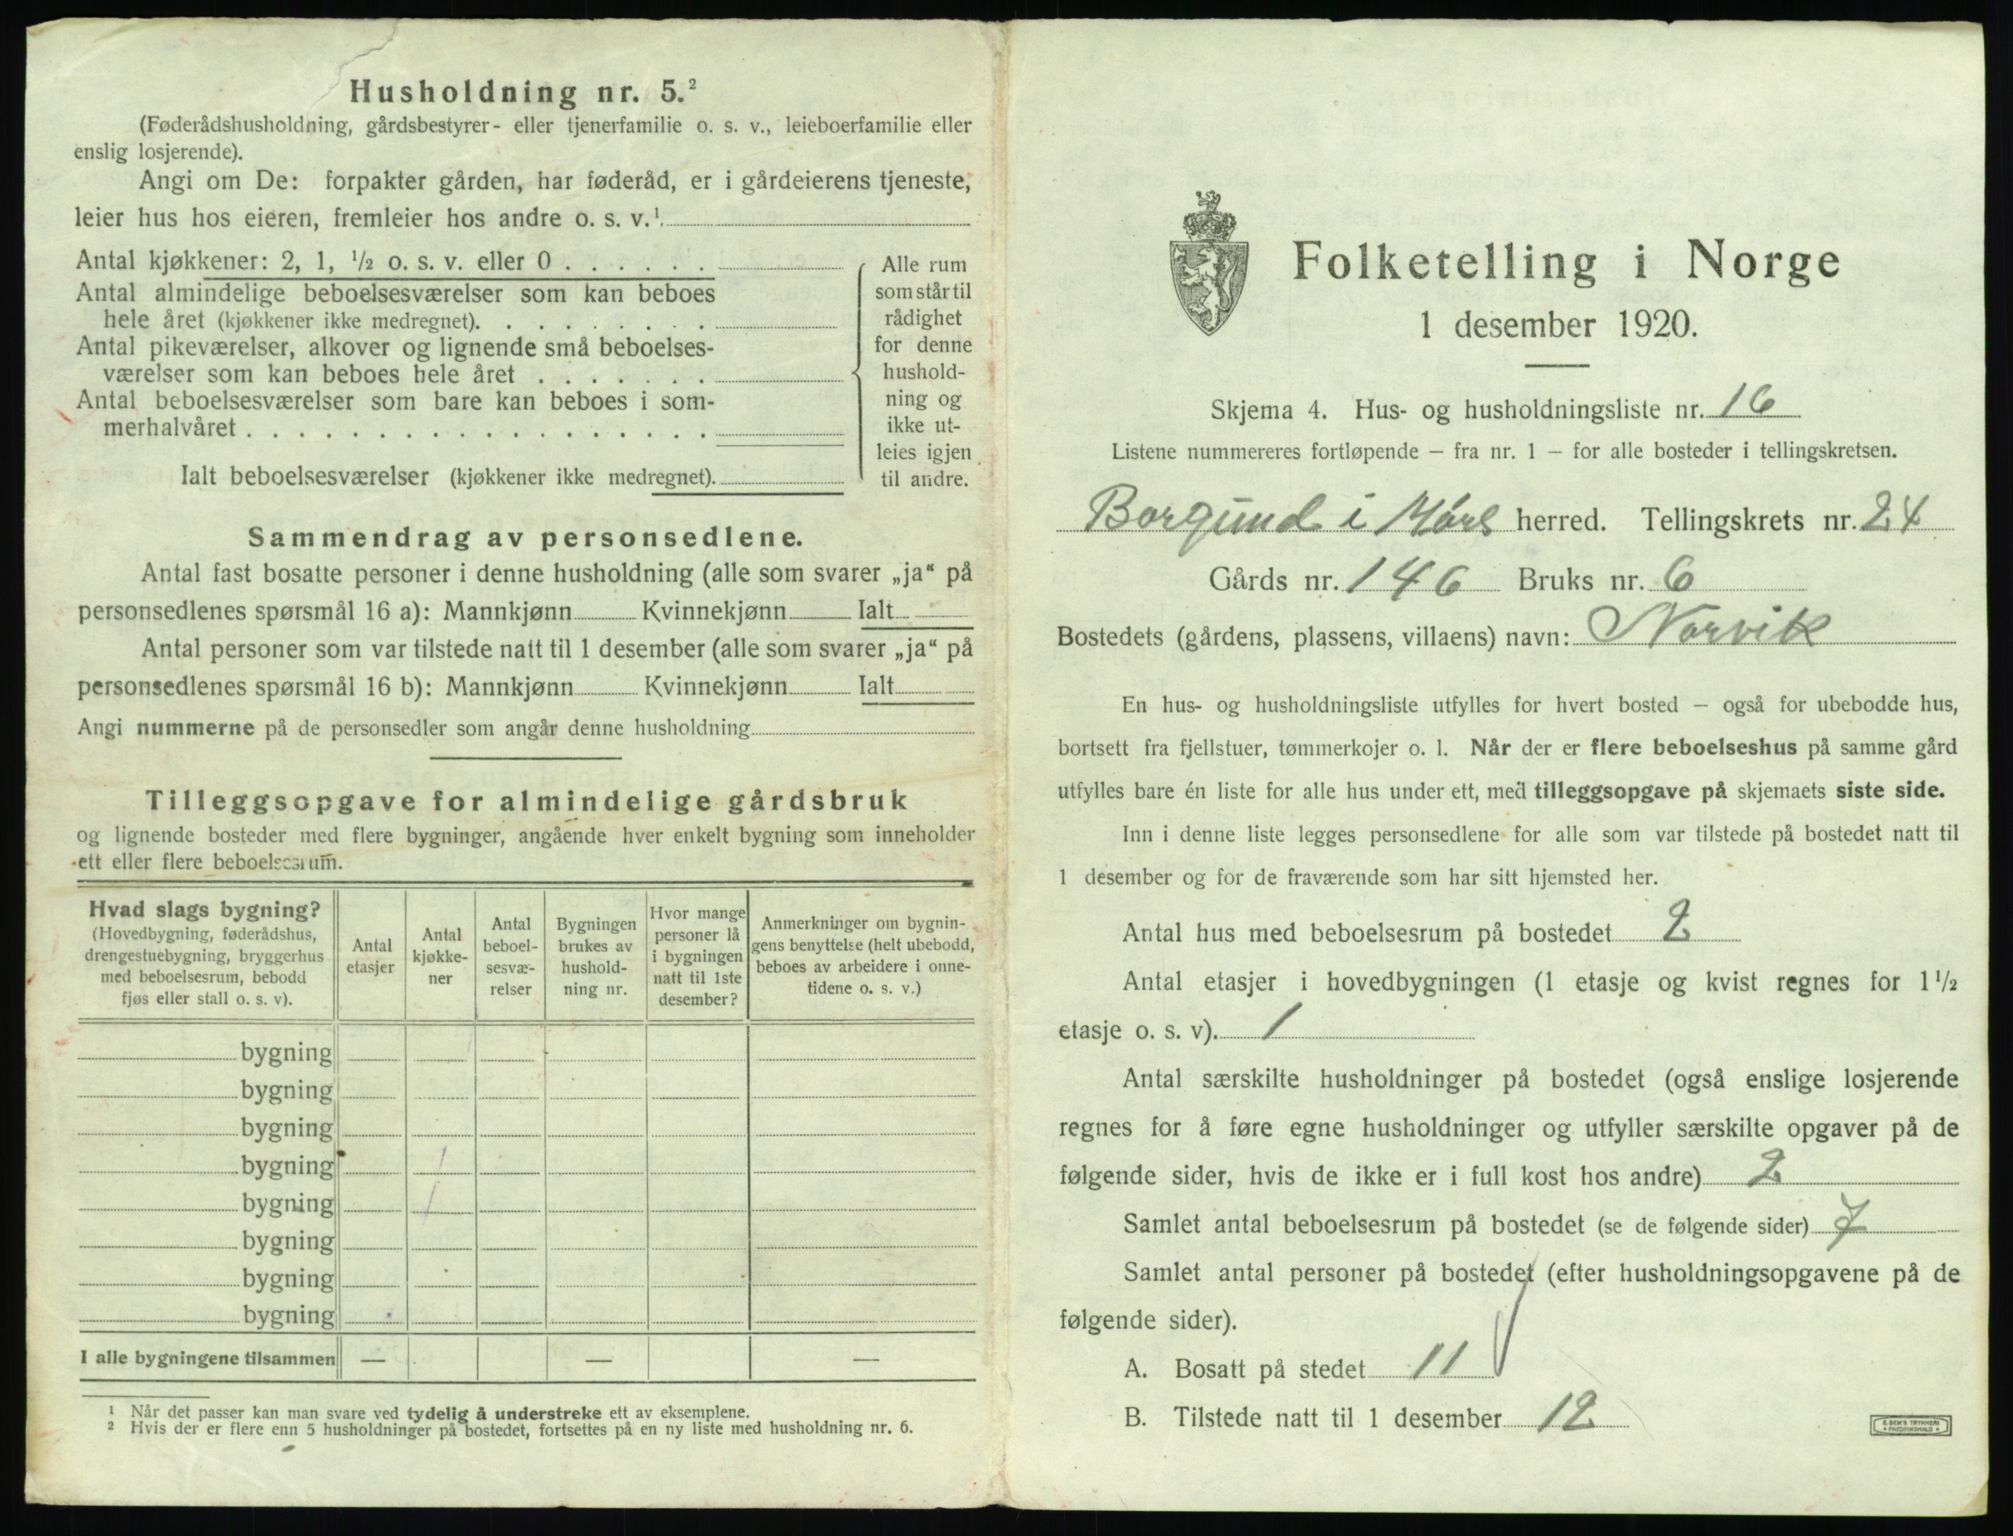 Husholdning nr. 5.²
(Føderådshusholdning, gårdsbestyrer- eller tjenerfamilie o. s. v., leieboerfamilie eller
enslig losjerende).
Angi om De: forpakter gården, har føderåd, er i gårdeierens tjeneste,
leier hus hos eieren, fremleier hos andre o. s. v.¹
Antal kjøkkener: 2, 1, ½ o. s. v. eller 0
Antal almindelige beboelsesværelser som kan beboes
hele året (kjøkkener ikke medregnet).
Antal pikeværelser, alkover og lignende små beboelses-
værelser som kan beboes hele året
Antal beboelsesværelser som bare kan beboes i som-
merhalvåret
Ialt beboelsesværelser (kjøkkener ikke medregnet).
Alle rum
som står til
rådighet
for denne
hushold-
ning og
ikke ut-
leies igjen
til andre.
Sammendrag av personsedlene.
Antal fast bosatte personer i denne husholdning (alle som svarer „ja“ på
personsedlenes spørsmål 16 a): Mannkjønn Kvinnekjønn Ialt
Antal personer som var tilstede natt til 1 desember (alle som svarer „ja“ på
personsedlenes spørsmål 16 b): Mannkjønn Kvinnekjønn Ialt
Angi nummerne på de personsedler som angår denne husholdning
Tilleggsopgave for almindelige gårdsbruk
og lignende bosteder med flere bygninger, angående hver enkelt bygning som inneholder
ett eller flere beboelsesrum.
Hvad slags bygning?
(Hovedbygning, føderådshus,
drengestuebygning, bryggerhus
med beboelsesrum, bebodd
fjøs eller stall o. s. v).
Antal
etasjer
Antal
kjøkke-
ner
Antal
beboel-
sesvæ-
relser
Bygningen
brukes av
hushold-
ning nr.
Hvor mange
personer lå
i bygningen
natt til 1ste
desember?
Anmerkninger om bygnin-
gens benyttelse (helt ubebodd,
beboes av arbeidere i onne-
tidene o. s. v.)
bygning
bygning
bygning
bygning
bygning
bygning
bygning
bygning
I alle bygningene tilsammen — — —
¹ Når det passer kan man svare ved tydelig å understreke ett av eksemplene.
² Hvis der er flere enn 5 husholdninger på bostedet, fortsettes på en ny liste med husholdning nr. 6.
Folketelling i Norge
1 desember 1920.
Skjema 4. Hus- og husholdningsliste nr. 16
Listene nummereres fortløpende — fra nr. 1 — for alle bosteder i tellingskretsen.
Borgund i Møre herred. Tellingskrets nr. 24
Gårds nr. 146 Bruks nr. 6
Bostedets (gårdens, plassens, villaens) navn: Norvik
En hus- og husholdningsliste utfylles for hvert bosted — også for ubebodde hus,
bortsett fra fjellstuer, tømmerkojer o. l. Når der er flere beboelseshus på samme gård
utfylles bare én liste for alle hus under ett, med tilleggsopgave på skjemaets siste side.
Inn i denne liste legges personsedlene for alle som var tilstede på bostedet natt til
1 desember og for de fraværende som har sitt hjemsted her.
Antal hus med beboelsesrum på bostedet 2
Antal etasjer i hovedbygningen (1 etasje og kvist regnes for 1½
etasje o. s. v). 1
Antal særskilte husholdninger på bostedet (også enslige losjerende
regnes for å føre egne husholdninger og utfyller særskilte opgaver på de
følgende sider, hvis de ikke er i full kost hos andre) 2
Samlet antal beboelsesrum på bostedet (se de følgende sider) 7
Samlet antal personer på bostedet (efter husholdningsopgavene på de
følgende sider).
A. Bosatt på stedet 11
B. Tilstede natt til 1 desember 12
E. SEM'S TRYKKERI
FREDRIKSHALD